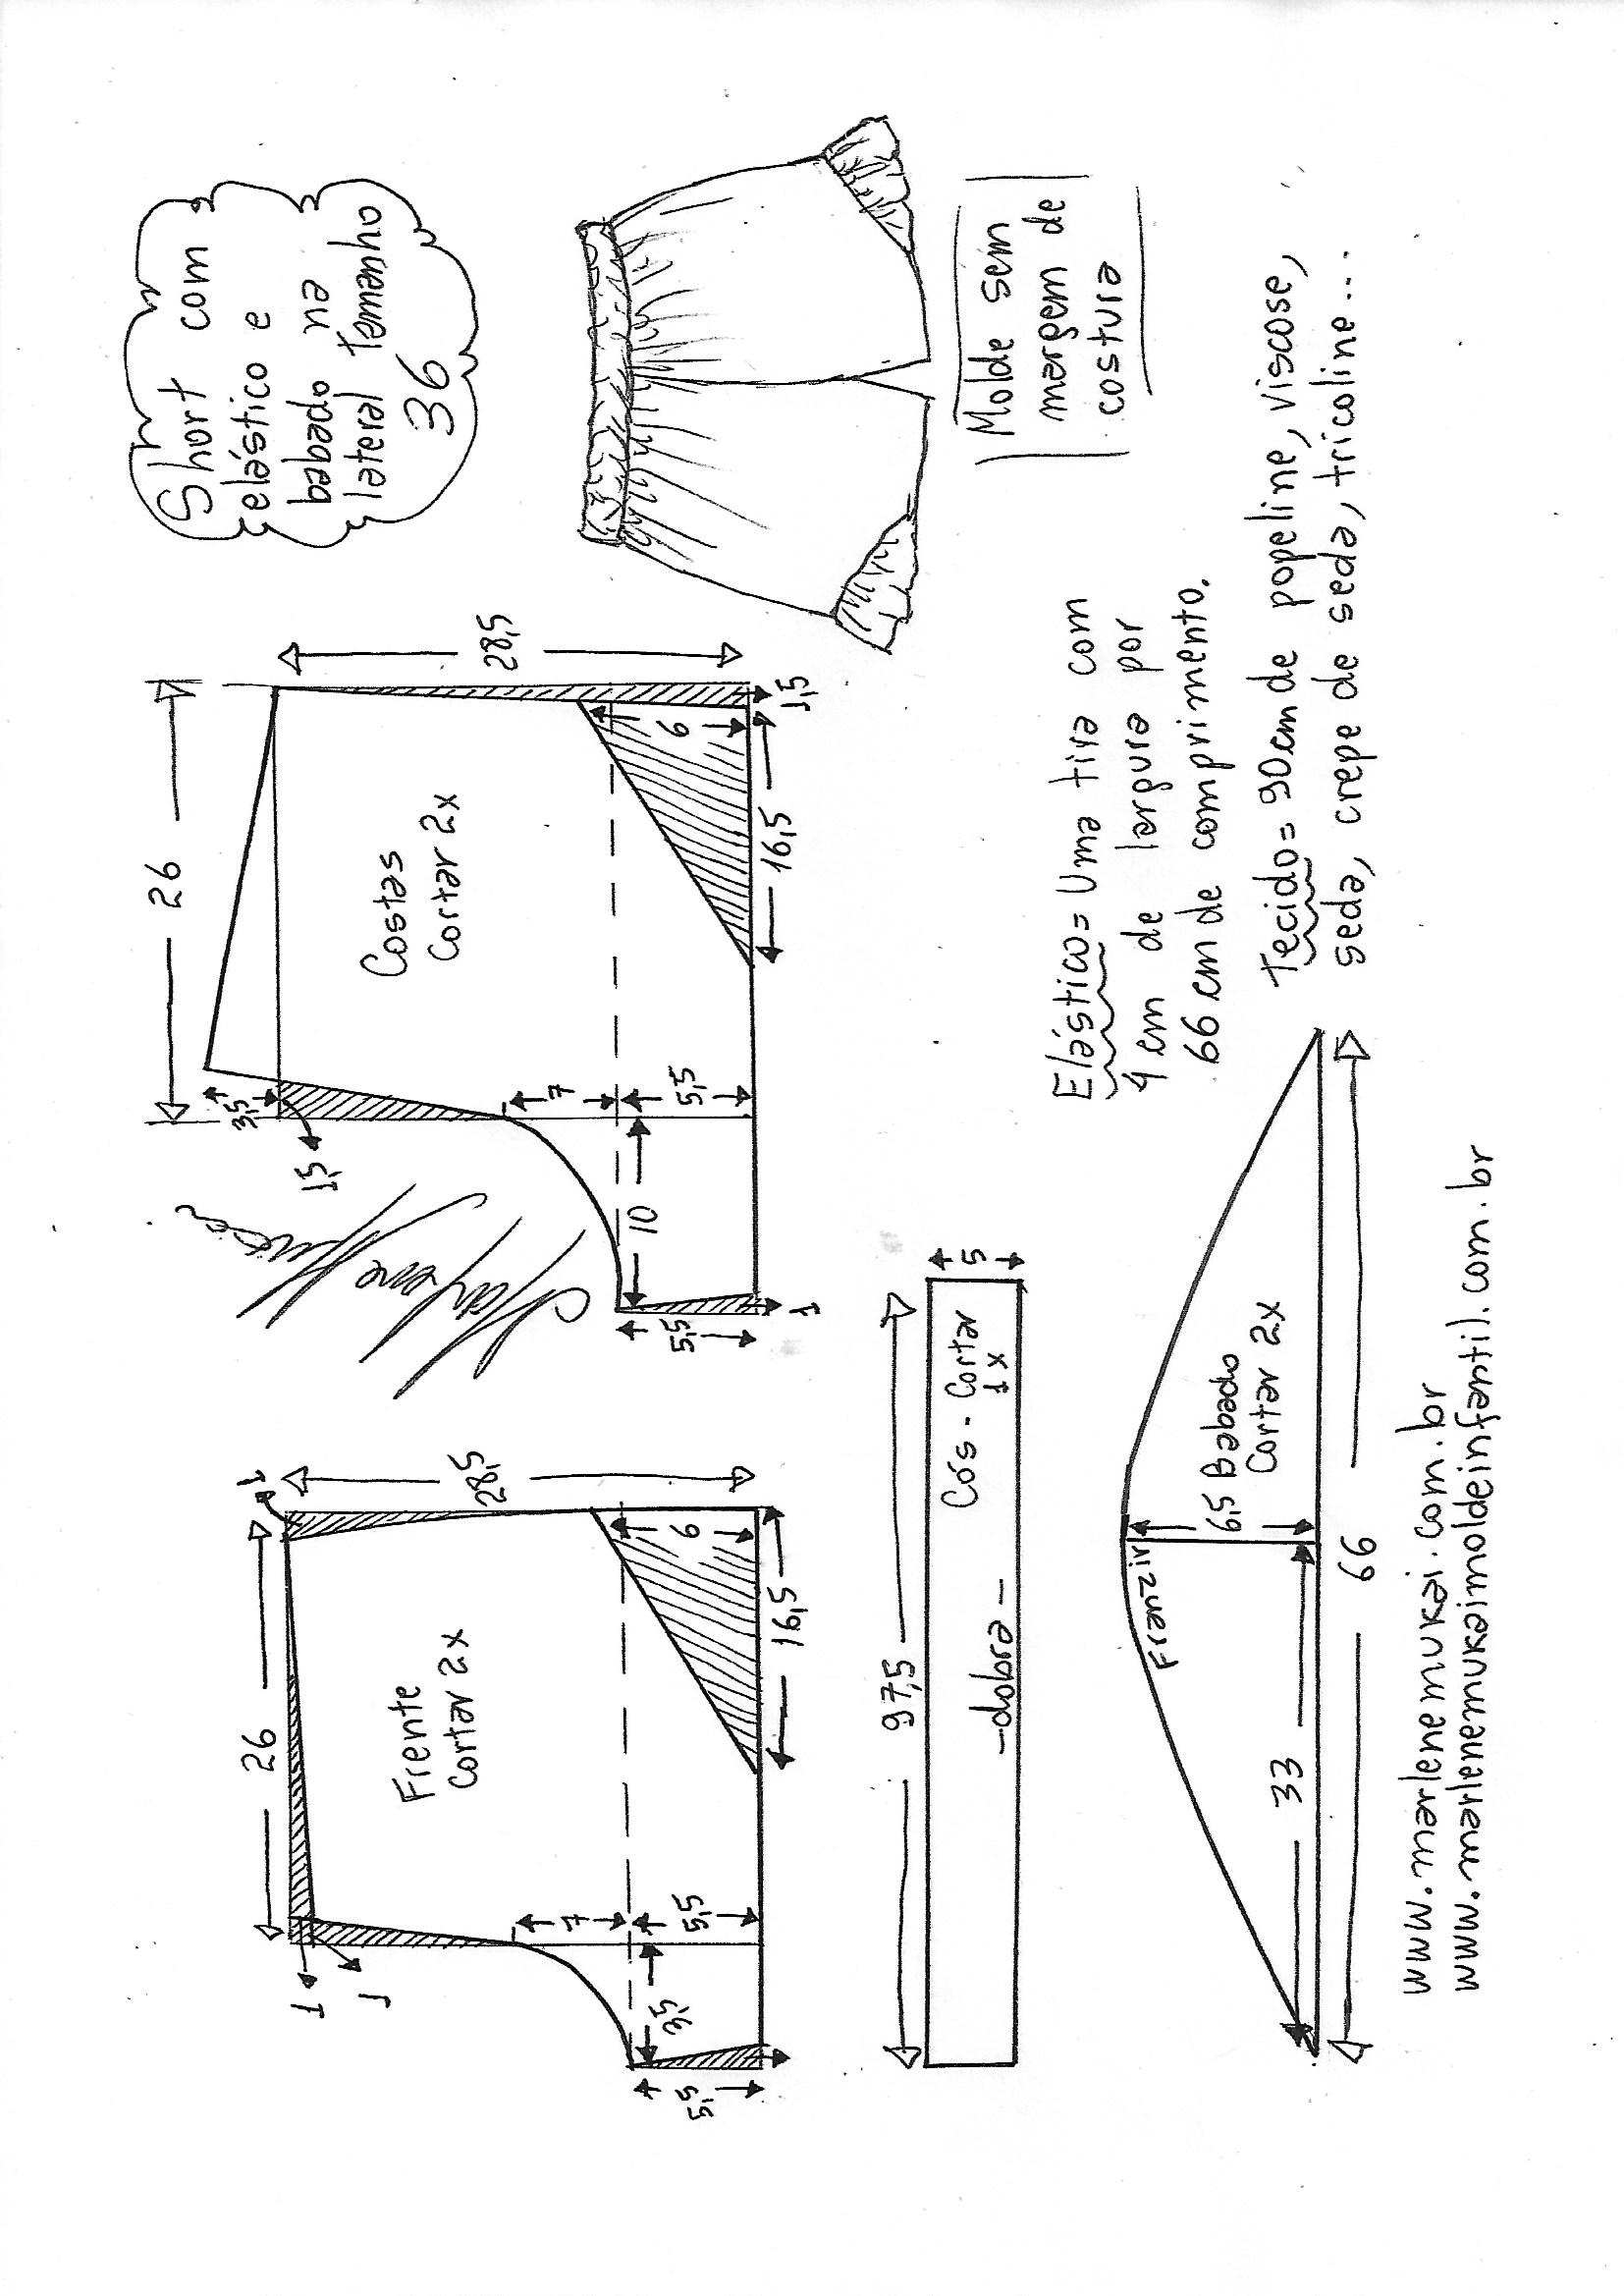 Short com
elástico e
babado na
lateral tamanho
36
26
28,5
1
1
1
Frente
Cortar 2x
7
5,5
3,5
5,5
6
16,5
26
28,5
3,5
1,5
Costas
Cortar 2x
7
5,5
10
5,5
1
6
1,5
16,5
Marlene
Mukai
Molde sem
margem de
costura
97,5
5
Cós - Cortar
1x
- dobra -
Elástico = Uma tira com
4 cm de largura por
66 cm de comprimento.
Tecido = 90 cm de popeline, viscose,
seda, crepe de seda, tricoline...
Franzir
6,5
Babado
Cortar 2x
33
66
www.marlenemukai.com.br
www.marlenemukaimoldeinfantil.com.br